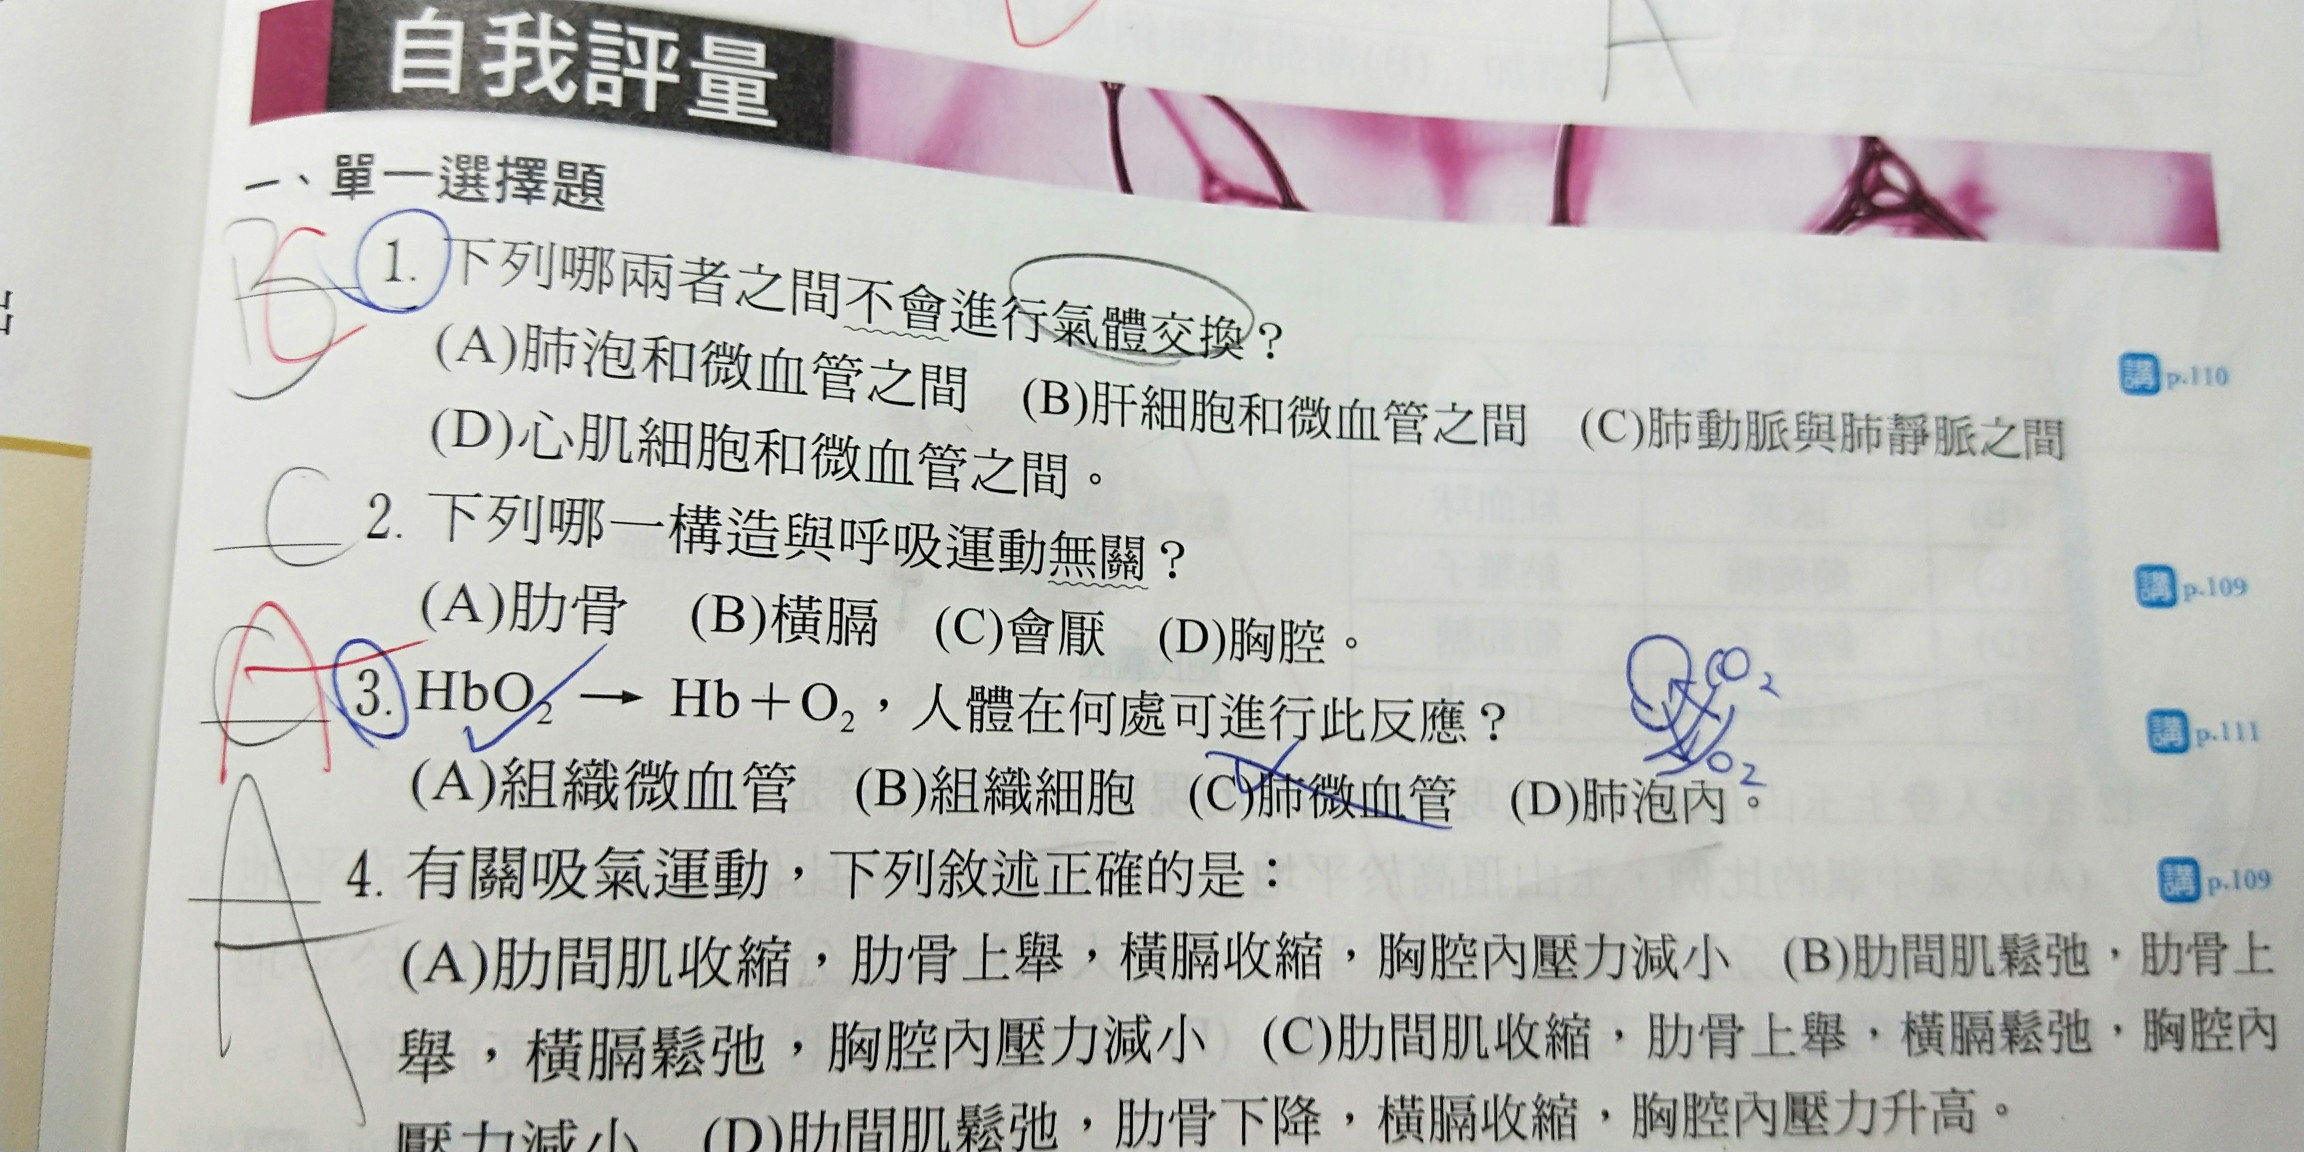 A
自我評量
一、單一選擇題
B C 1. 下列哪兩者之間不會進行氣體交換？
(A)肺泡和微血管之間 (B)肝細胞和微血管之間 (C)肺動脈與肺靜脈之間 講 p.110
(D)心肌細胞和微血管之間。
C 2. 下列哪一構造與呼吸運動無關？
(A)肋骨 (B)橫膈 (C)會厭 (D)胸腔。 講 p.109
C A 3. HbO₂ → Hb＋O₂，人體在何處可進行此反應？ CO₂ 講 p.111
(A)組織微血管 (B)組織細胞 (C)肺微血管 (D)肺泡內。 O₂
A 4. 有關吸氣運動，下列敘述正確的是： 講 p.109
(A)肋間肌收縮，肋骨上舉，橫膈收縮，胸腔內壓力減小 (B)肋間肌鬆弛，肋骨上
舉，橫膈鬆弛，胸腔內壓力減小 (C)肋間肌收縮，肋骨上舉，橫膈鬆弛，胸腔內
壓力減小 (D)肋間肌鬆弛，肋骨下降，橫膈收縮，胸腔內壓力升高。